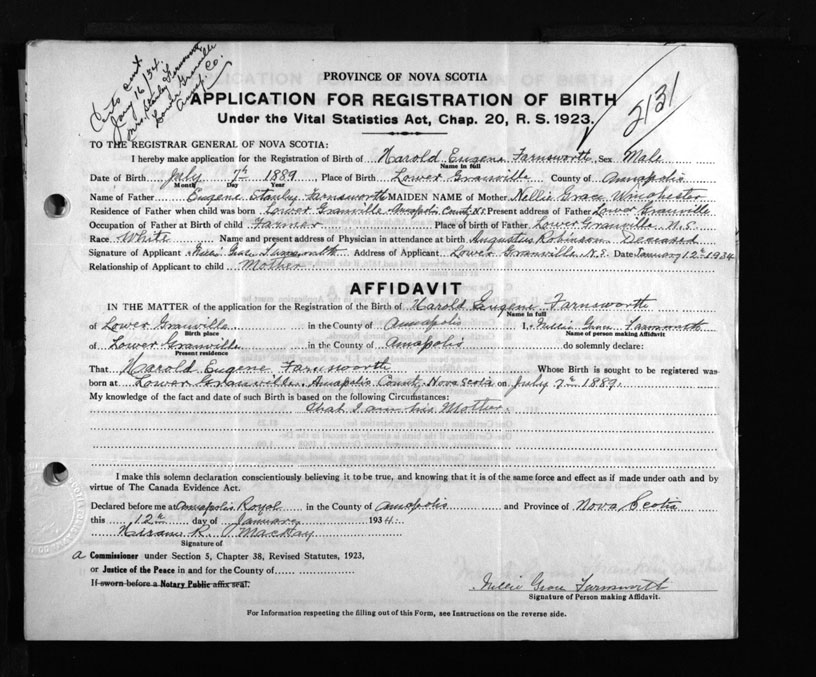 Jany 16/34.
Mrs. Stanley Farnsworth
Lower Granville
Annap. Co.
2131
PROVINCE OF NOVA SCOTIA
APPLICATION FOR REGISTRATION OF BIRTH
Under the Vital Statistics Act, Chap. 20, R. S. 1923.
TO THE REGISTRAR GENERAL OF NOVA SCOTIA:
I hereby make application for the Registration of Birth of Harold Eugene Farnsworth Sex Male
Name in full
Date of Birth July 7th 1889 Place of Birth Lower Granville County of Annapolis
Month Day Year
Name of Father Eugene Stanley Farnsworth MAIDEN NAME of Mother Nellie Grace Winchester
Residence of Father when child was born Lower Granville Annapolis County N.S. Present address of Father Lower Granville
Occupation of Father at Birth of child Farmer Place of birth of Father Lower Granville N.S.
Race White Name and present address of Physician in attendance at birth Augustus Robinson Deceased
Signature of Applicant Grace Farnsworth Address of Applicant Lower Granville N.S. Date January 12th 1934
Relationship of Applicant to child Mother
AFFIDAVIT
IN THE MATTER of the application for the Registration of the Birth of Harold Eugene Farnsworth
Name in full
of Lower Granville in the County of Annapolis I, Nellie Grace Farnsworth
Birth place Name of person making Affidavit
of Lower Granville in the County of Annapolis do solemnly declare:
Present residence
That Harold Eugene Farnsworth Whose Birth is sought to be registered was
born at Lower Granville Annapolis County Nova Scotia on July 7th 1889.
My knowledge of the fact and date of such Birth is based on the following Circumstances:
that I am his Mother.
I make this solemn declaration conscientiously believing it to be true, and knowing that it is of the same force and effect as if made under oath and by
virtue of The Canada Evidence Act.
Declared before me at Annapolis Royal in the County of Annapolis and Province of Nova Scotia
this 12th day of January 1934.
R. MacKay
Signature of
a Commissioner under Section 5, Chapter 38, Revised Statutes, 1923,
or Justice of the Peace in and for the County of
If sworn before a Notary Public affix seal.
Nellie Grace Farnsworth
Signature of Person making Affidavit.
For Information respecting the filling out of this Form, see Instructions on the reverse side.